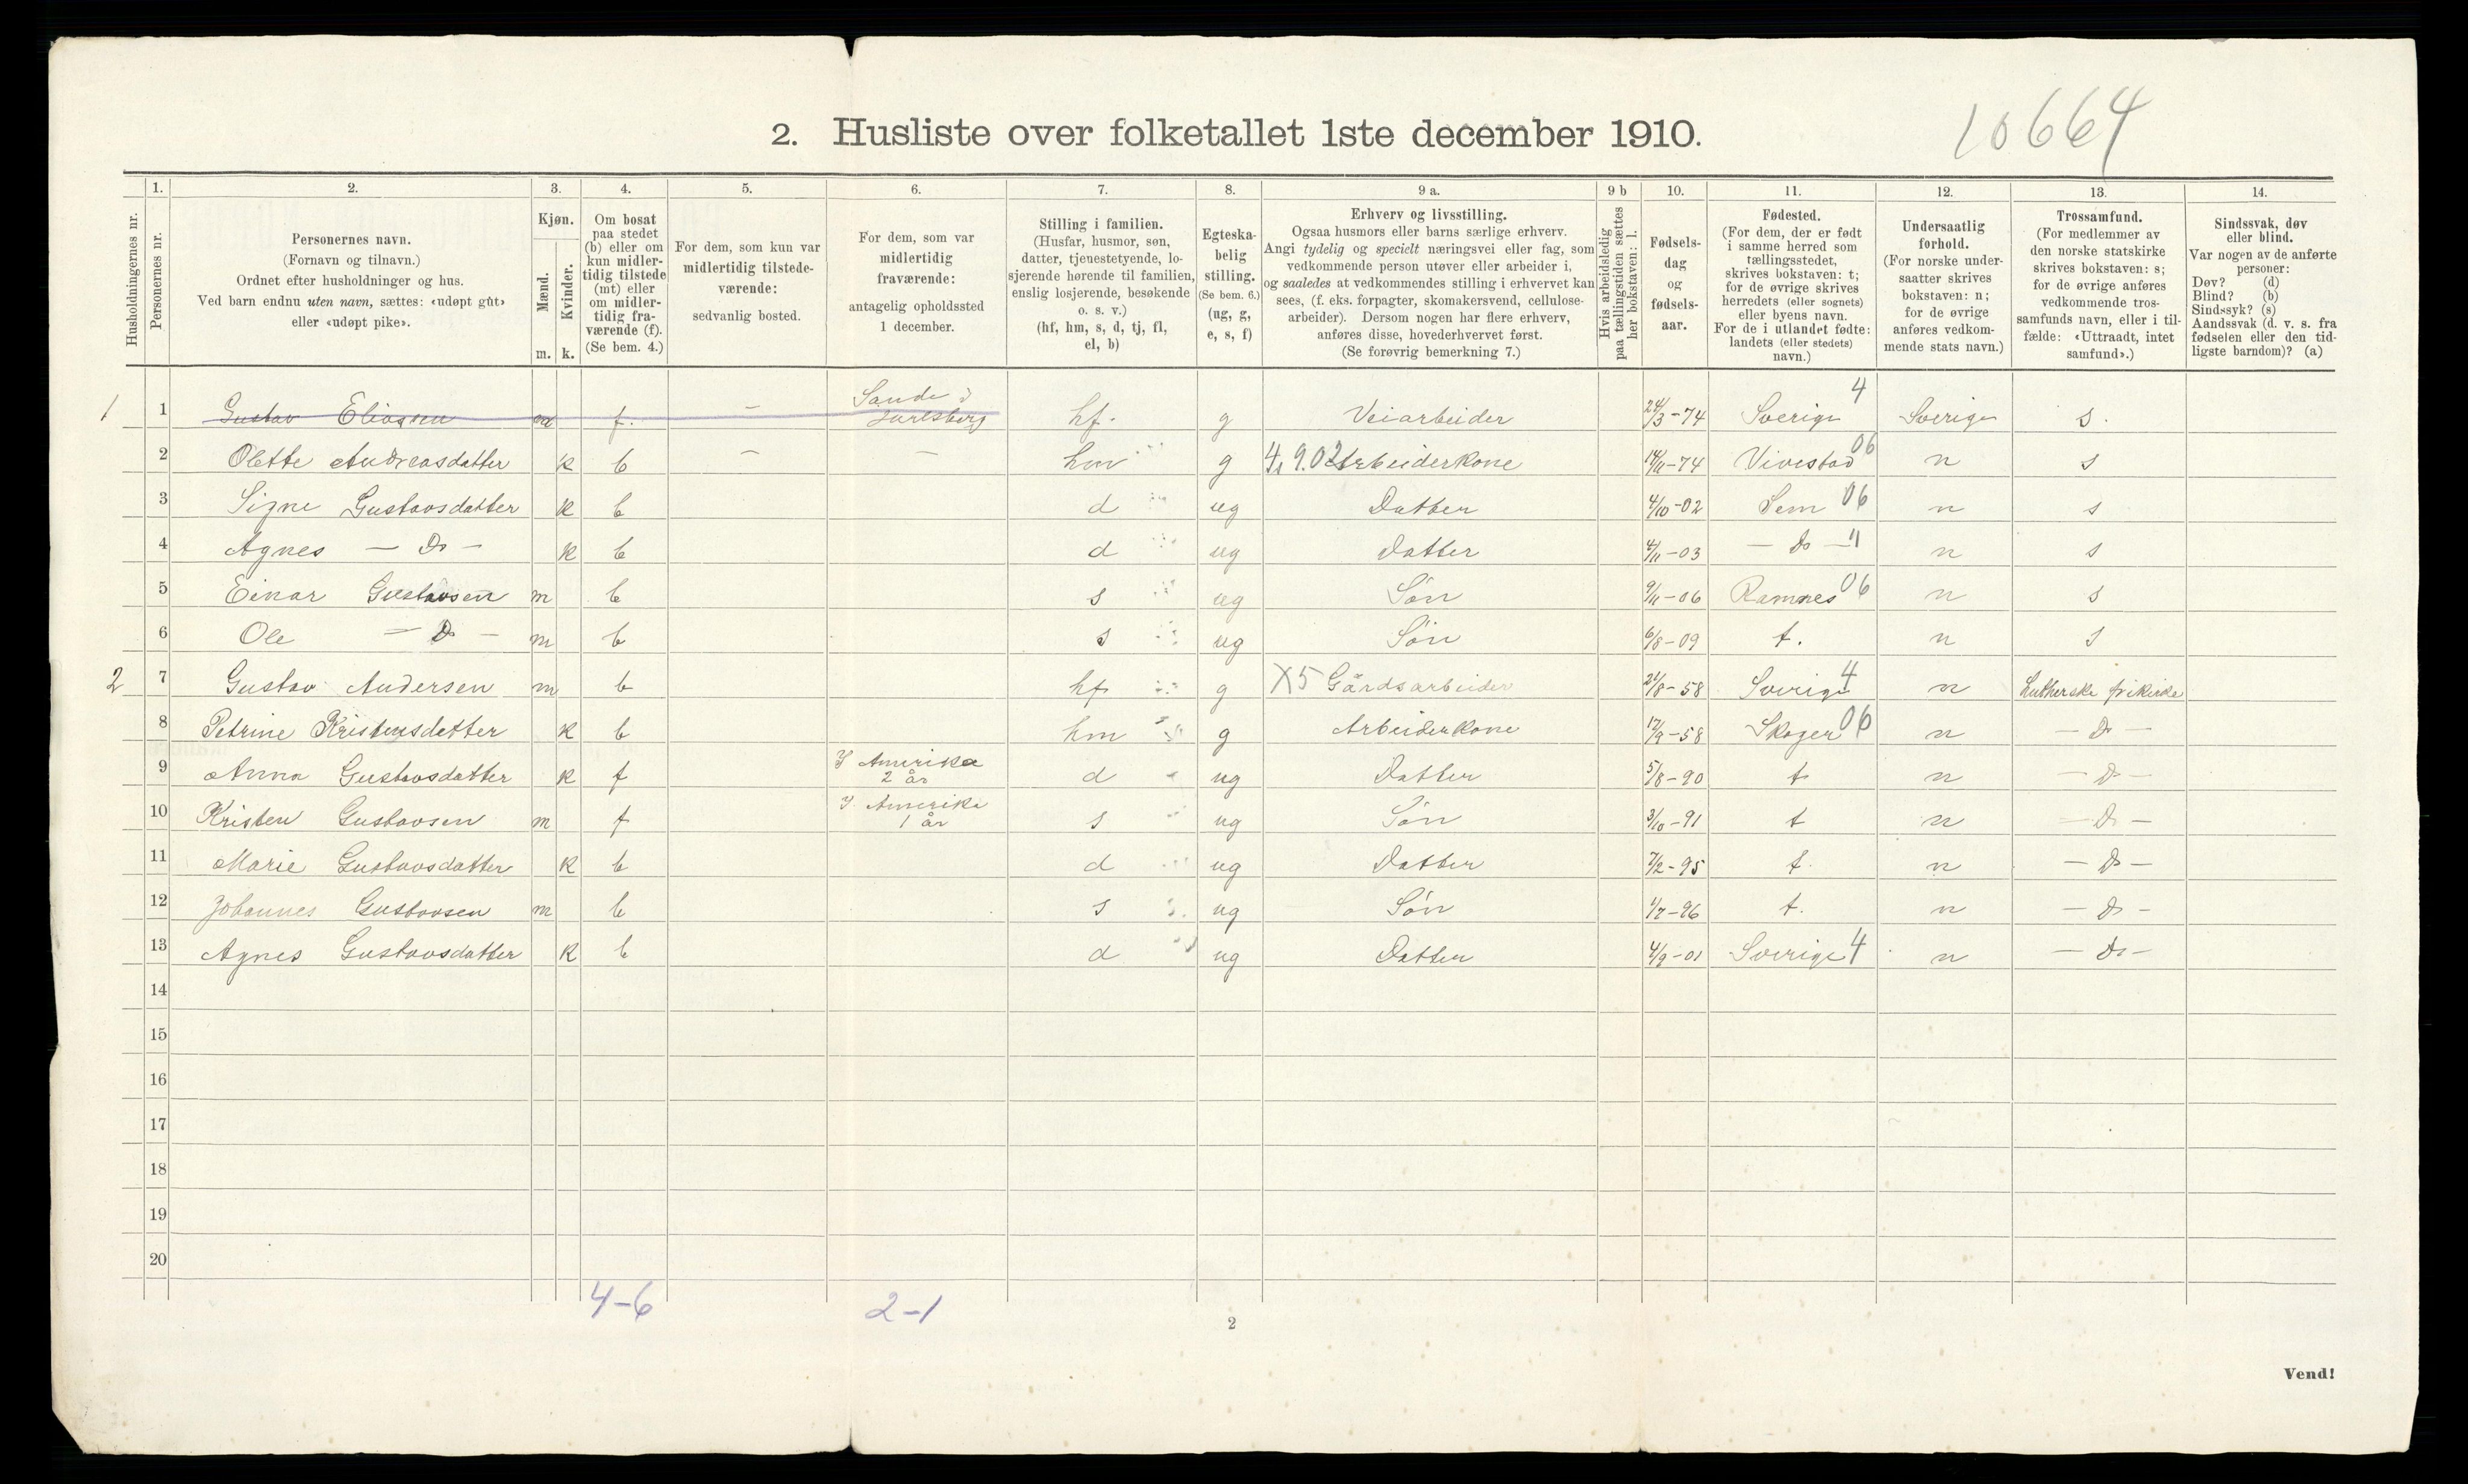 10664
2. Husliste over folketallet 1ste december 1910.
1. 2. 3. 4. 5. 6. 7. 8. 9 a. 9 b 10. 11. 12. 13. 14.
Husholdningernes nr.
Personernes nr.
Personernes navn.
(Fornavn og tilnavn.)
Ordnet efter husholdninger og hus.
Ved barn endnu uten navn, sættes: «udøpt gut»
eller «udøpt pike».
Kjøn.
Mænd.
Kvinder.
m. k.
Om bosat
paa stedet
(b) eller om
kun midler-
tidig tilstede
(mt) eller
om midler-
tidig fra-
værende (f).
(Se bem. 4.)
For dem, som kun var
midlertidig tilstede-
værende:
sedvanlig bosted.
For dem, som var
midlertidig
fraværende:
antagelig opholdssted
1 december.
Stilling i familien.
(Husfar, husmor, søn,
datter, tjenestetyende, lo-
sjerende hørende til familien,
enslig losjerende, besøkende
o. s. v.)
(hf, hm, s, d, tj, fl,
el, b)
Egteska-
belig
stilling.
(Se bem. 6.)
(ug, g,
e, s, f)
Erhverv og livsstilling.
Ogsaa husmors eller barns særlige erhverv.
Angi tydelig og specielt næringsvei eller fag, som
vedkommende person utøver eller arbeider i,
og saaledes at vedkommendes stilling i erhvervet kan
sees, (f. eks. forpagter, skomakersvend, cellulose-
arbeider). Dersom nogen har flere erhverv,
anføres disse, hovederhvervet først.
(Se forøvrig bemerkning 7.)
Hvis arbeidsledig
paa tællingstiden sættes
her bokstaven: l.
Fødsels-
dag
og
fødsels-
aar.
Fødested.
(For dem, der er født
i samme herred som
tællingsstedet,
skrives bokstaven: t;
for de øvrige skrives
herredets (eller sognets)
eller byens navn.
For de i utlandet fødte:
landets (eller stedets)
navn.)
Undersaatlig
forhold.
(For norske under-
saatter skrives
bokstaven: n;
for de øvrige
anføres vedkom-
mende stats navn.)
Trossamfund.
(For medlemmer av
den norske statskirke
skrives bokstaven: s;
for de øvrige anføres
vedkommende tros-
samfunds navn, eller i til-
fælde: «Uttraadt, intet
samfund».)
Sindssvak, døv
eller blind.
Var nogen av de anførte
personer:
Døv? (d)
Blind? (b)
Sindssyk? (s)
Aandssvak (d. v. s. fra
fødselen eller den tid-
ligste barndom)? (a)
1 1 Gustav Eliasen m f. – Sande i Jarlsberg hf. g Veiarbeider 24/3-74 Sverige 4 Sverige s.
2 Olette Andreasdatter k b – – hm g 4.9.02 Arbeiderkone 14/11-74 Vivestad 06 n s
3 Signe Gustavsdatter k b d ug Datter 4/10-02 Sem 06 n s
4 Agnes – Do – k b d ug Datter 4/11-03 – Do – " n s
5 Einar Gustavsen m b s ug Søn 9/11-06 Ramnes 06 n s
6 Ole – Do – m b s ug Søn 6/8-09 t. n s
2 7 Gustav Andersen m b hf g X5 Gårdsarbeider 24/8-58 Sverige 4 n Lutherske frikirke
8 Petrine Kristensdatter k b hm g Arbeiderkone 17/9-58 Skoger 06 n – Do –
9 Anna Gustavsdatter k f I Amerika 2 år d ug Datter 5/8-90 t n – Do –
10 Kristen Gustavsen m f I Amerika 1 år s ug Søn 3/10-91 t n – Do –
11 Marie Gustavsdatter k b d ug Datter 7/2-95 t. n – Do –
12 Johannes Gustavsen m b s ug Søn 1/7-96 t. n – Do –
13 Agnes Gustavsdatter k b d ug Datter 4/9-01 Sverige 4 n – Do –
14
15
16
17
18
19
20
4-6 2-1
2
Vend!